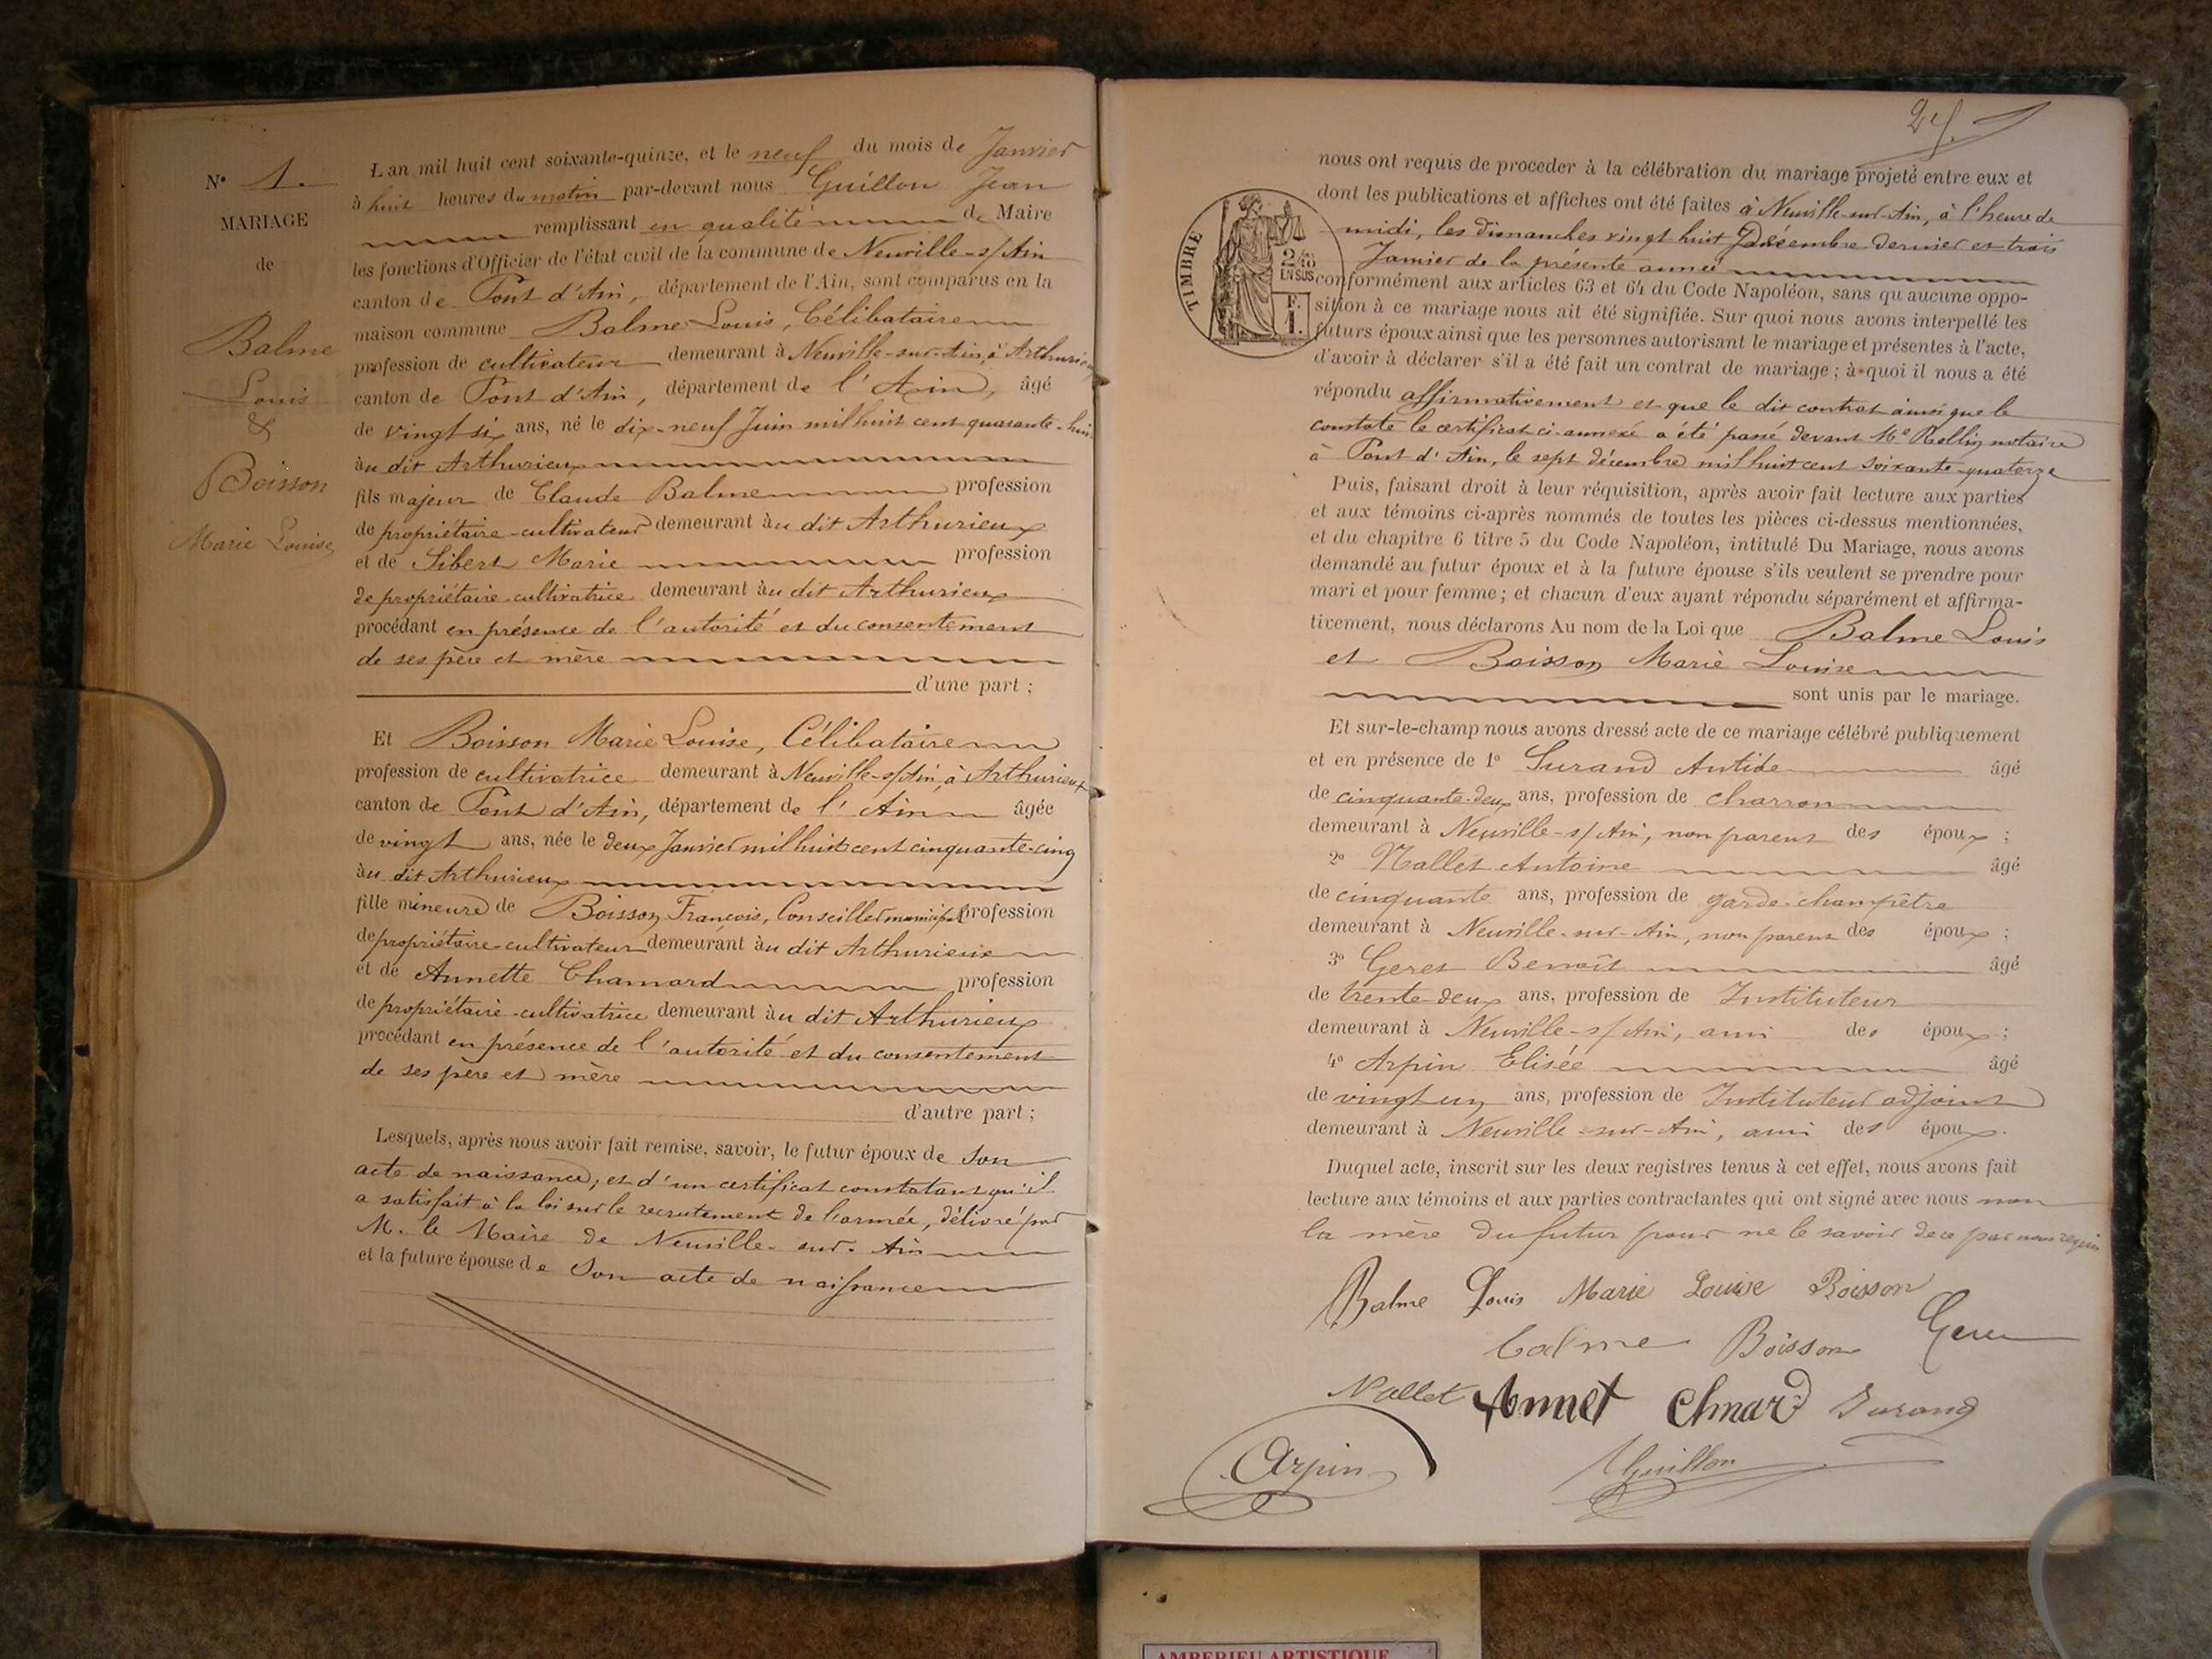 N° 1.
MARIAGE
de
Balme
Louis
&
Boisson
Marie Louise
L'an mil huit cent soixante-quinze, et le neuf du mois de Janvier
à huit heures du matin par-devant nous Guillon Jean
remplissant en qualité de Maire
les fonctions d'Officier de l'état civil de la commune de Neuville-s/Ain
canton de Pont d'Ain, département de l'Ain, sont comparus en la
maison commune Balme Louis, Célibataire
profession de cultivateur demeurant à Neuville-sur-Ain, à Arthurieux
canton de Pont d'Ain, département de l'Ain, âgé
de vingt six ans, né le dix-neuf Juin mil huit cent quarante-huit
au dit Arthurieux
fils majeur de Claude Balme profession
de propriétaire-cultivateur demeurant au dit Arthurieux
et de Sibert Marie profession
de propriétaire-cultivatrice demeurant au dit Arthurieux
procédant en présence de l'autorité et du consentement
de ses père et mère
d'une part ;
Et Boisson Marie Louise, Célibataire
profession de cultivatrice demeurant à Neuville-s/Ain, à Arthurieux
canton de Pont d'Ain, département de l'Ain âgée
de vingt ans, née le deux Janvier mil huit cent cinquante-cinq
au dit Arthurieux
fille mineure de Boisson François, Conseiller municipal profession
de propriétaire-cultivateur demeurant au dit Arthurieux
et de Annette Chamard profession
de propriétaire-cultivatrice demeurant au dit Arthurieux
procédant en présence de l'autorité et du consentement
de ses père et mère
d'autre part ;
Lesquels, après nous avoir fait remise, savoir, le futur époux de son
acte de naissance; et d'un certificat constatant qu'il
a satisfait à la loi sur le recrutement de l'armée, délivré par
M. le Maire de Neuville-sur-Ain
et la future épouse de son acte de naissance
TIMBRE
2/10
EN SUS
F.
1.
nous ont requis de proceder à la célébration du mariage projeté entre eux et
dont les publications et affiches ont été faites à Neuville-sur-Ain, à l'heure de
midi, les dimanches vingt huit Décembre dernier et trois
Janvier de la présente année
conformément aux articles 63 et 64 du Code Napoléon, sans qu'aucune oppo-
sition à ce mariage nous ait été signifiée. Sur quoi nous avons interpellé les
futurs époux ainsi que les personnes autorisant le mariage et présentes à l'acte,
d'avoir à déclarer s'il a été fait un contrat de mariage ; à quoi il nous a été
répondu affirmativement et que le dit contrat ainsi que le
constate le certificat ci-annexé a été passé devant Me Rellig notaire
à Pont d'Ain, le sept décembre mil huit cent soixante-quatorze
Puis, faisant droit à leur réquisition, après avoir fait lecture aux parties
et aux témoins ci-après nommés de toutes les pièces ci-dessus mentionnées,
et du chapitre 6 titre 5 du Code Napoléon, intitulé Du Mariage, nous avons
demandé au futur époux et à la future épouse s'ils veulent se prendre pour
mari et pour femme ; et chacun d'eux ayant répondu séparément et affirma-
tivement, nous déclarons Au nom de la Loi que Balme Louis
et Boisson Marie Louise
sont unis par le mariage.
Et sur-le-champ nous avons dressé acte de ce mariage célébré publiquement
et en présence de 1° Surand Antide âgé
de cinquante-deux ans, profession de charron
demeurant à Neuville-s/Ain, non parent des époux ;
2° Nallet Antoine âgé
de cinquante ans, profession de garde-champêtre
demeurant à Neuville-sur-Ain, non parent des époux ;
3° Geret Benoît âgé
de trente-deux ans, profession de Instituteur
demeurant à Neuville-s/Ain, ami des époux ;
4° Arpin Elisée âgé
de vingt un ans, profession de Instituteur adjoint
demeurant à Neuville-sur-Ain, ami des époux.
Duquel acte, inscrit sur les deux registres tenus à cet effet, nous avons fait
lecture aux témoins et aux parties contractantes qui ont signé avec nous non
la mère du futur pour ne le savoir de ce par nous requis
Balme Louis Marie Louise Boisson
Balme Boisson Geret
Nallet Annet Chmard Surand
Arpin Guillon
AMBERIEU ARTISTIQUE